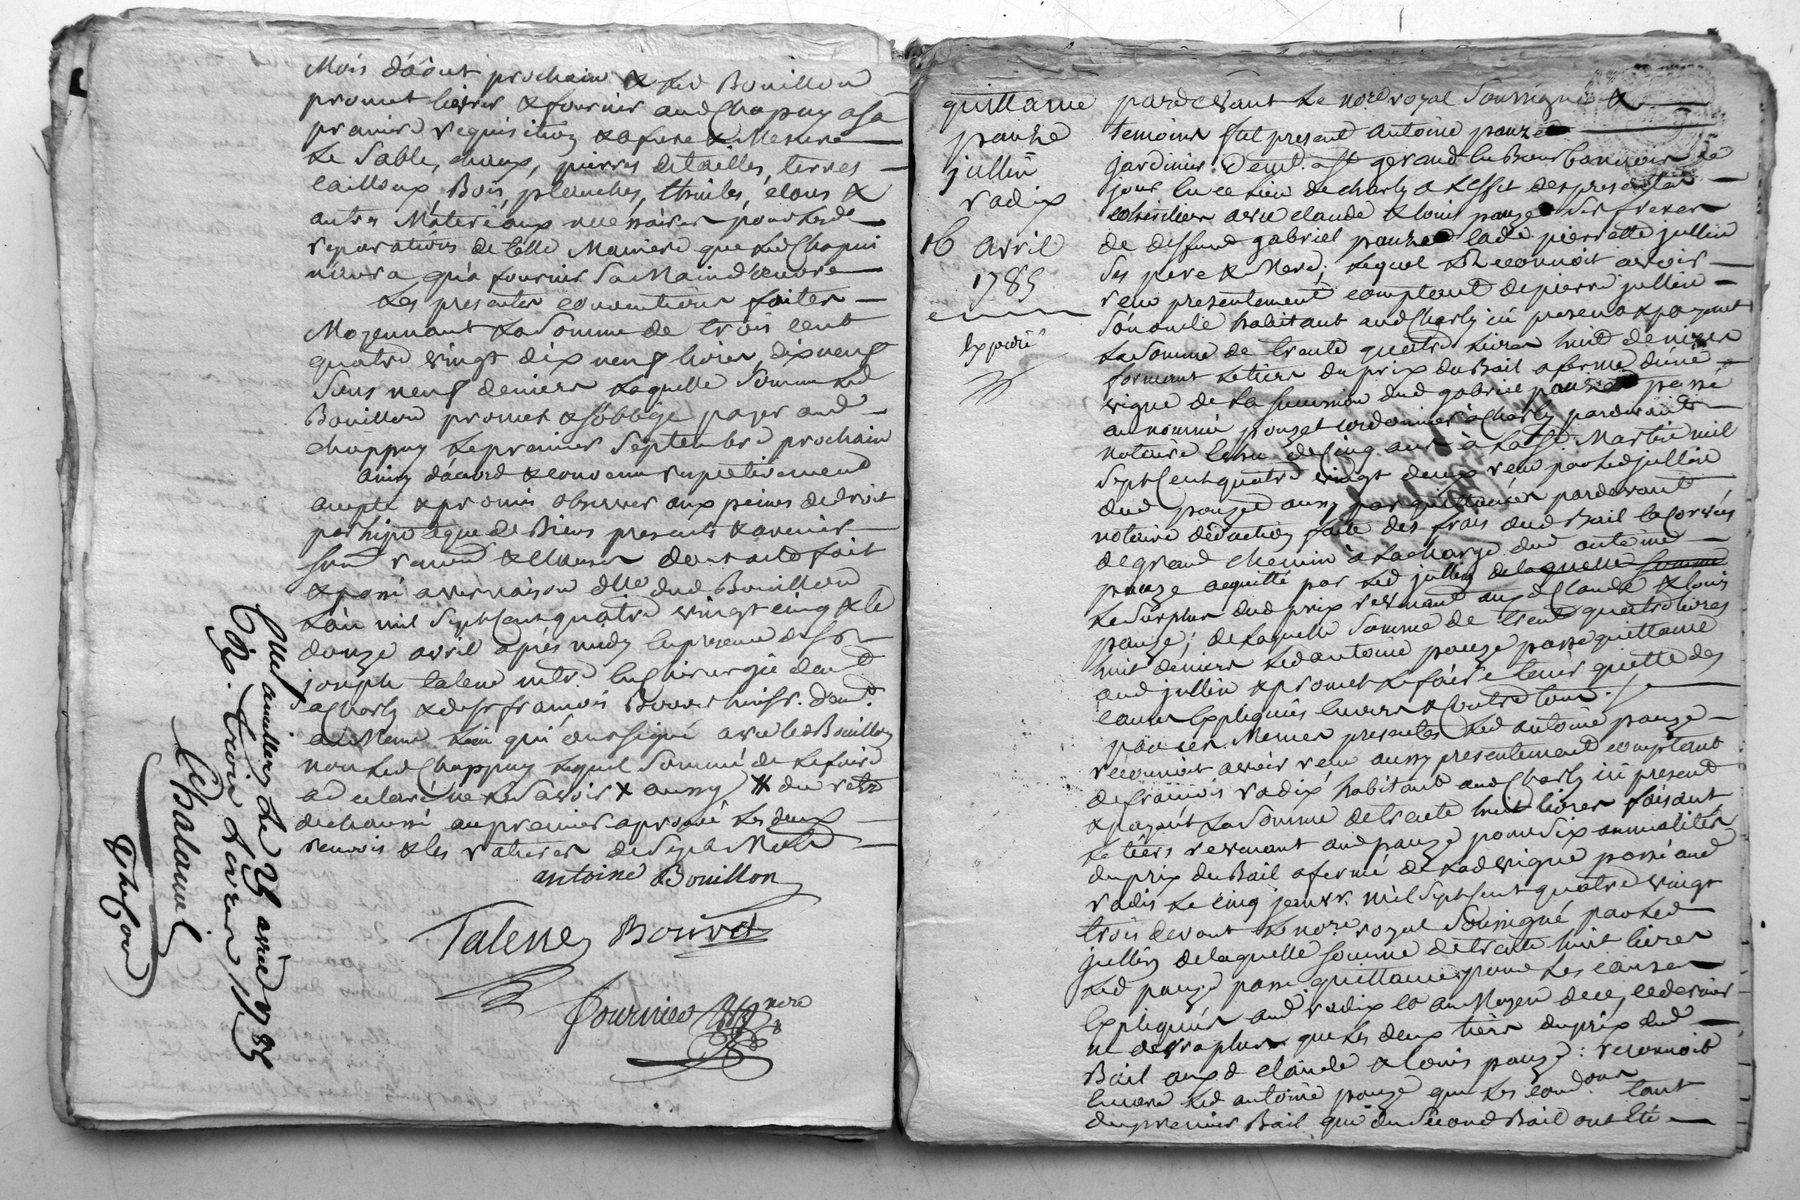 Mois d'août prochain & led Bouillon
promet livrer & fournir aud Chapuy a sa
premiere requisition & a fure & Mesure
le sable, chaux, pierres de tailles, terres
cailloux, Bois, planches, thuiles, clous &
autres Matereaux necessaires pour lesd
reparations de telle Maniere que led Chapui
n'aura qu'a fournir sa Main d'œuvre
les presentes conventions faites
Moyennant la somme de trois cent
quatre vingt dix neuf livres, dix neuf
sous neuf deniers laquelle somme led
Bouillon promet & s'obblige payer aud
chappuy le premier septembre prochain
ainsy d'acord & convenu respectivement
accepté & promis observer aux peines de droit
par hipoteque de Biens presents & avenir
soum renon & clauses dont acte fait
& passé a vernaison dlle dud Bouillon
l'an mil sept cent quatre vingt cinq & le
douze avril après midy en presence de sr
joseph talene mtre en chirurgie demt
a Charly & de sr françois Bouvet huissr. demt.
au Meme lieu qui ont signé avec led Bouillon
non led Chappuy lequel sommé de le faire
a declaré ne le savoir & aussy # du reste
de chaussé au premier aprouvé les deux
renvois & les ratures de sept Mots
antoine Bouillon
Talene Bouvet
Fournier nore
Con. a millery le 25 avril 1785
Rx. trois livres 15 s
Chalamel
quittance
pauze
jullin
radix
16 avril
1785
Expedié
pardevant le nore royal soussigné &
temoins fut present Antoine pauze
jardinier demt. a st gerand en Bourbonnois de
jour en ce lieu de charly a l'effet des presentes
coheritier avec claude & louis pauze ses freres
de deffunt gabriel pauze & lad pierrette jullin
ses pere & Mere; lequel reconnoit avoir
reçu presentement comptant de pierre jullin
son oncle habitant aud Charly ici present & payant
la somme de trente quatre livres huit deniers
formant le tiers du prix du Bail a ferme d'une
vigne de la succession dud gabriel pauze passé
au nommé pouzet cordonnier a Charly pardevant
notaire le cinq ans à la st. Martin mil
sept Cent quatre vingt deux reçu par led jullin
dud pouzet aussy par quittances pardevant
notaire deduction faite des frais dud Bail & corvées
de grand chemin à la charge dud antoine
pauze acquitté par led jullin de laquelle somme
le surplus dud prix revenant auxd Claude & louis
pauze; de laquelle somme de trente quatre livres
huit deniers led antoine pauze passe quittance
aud jullin & promet le faire tenir quitte des
causes Expliquées envers & contre tous.
par ces Memes presentes led antoine pauze
reconnoit avoir reçu aussy presentement comptant
de françois radix habitant aud Charly ici present
& payant la somme de trente huit livres faisant
le tiers revenant aud pauze pour six annualités
du prix du Bail a ferme de lad vigne passé aud
radix le cinq janvr. mil sept cent quatre vingt
trois devant le nore royal soussigné par led
jullin de laquelle somme de trente huit livres
led pauze passe quittance pour les causes
Expliquées aud radix & au Moyen de ce, ce dernier
ne devra plus que les deux tiers du prix dud
Bail auxd claude & louis pauze: reconnoit
encore led antoine pauze que les
du premier Bail que du second Bail ont été